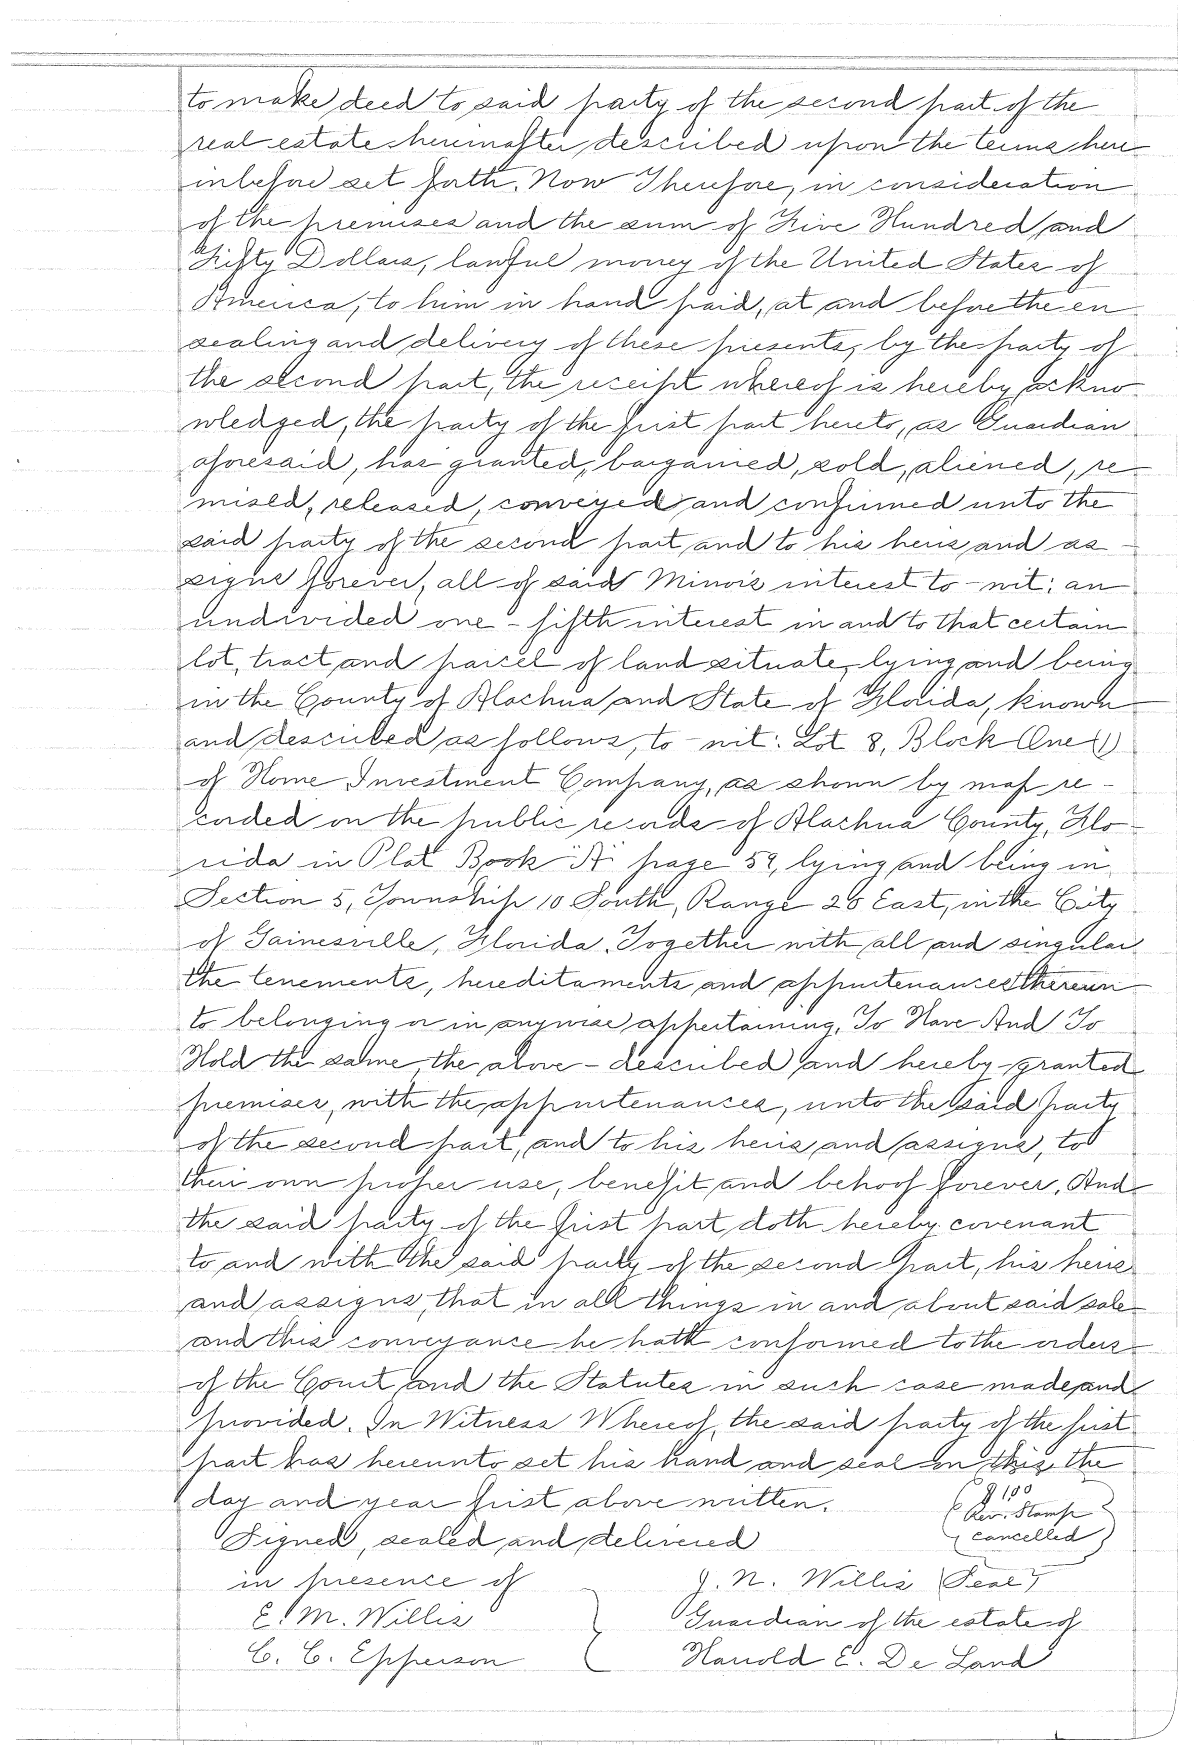 to make deed to said party of the second part of the
real estate hereinafter described upon the terms here
inbefore set forth. Now Therefore, in consideration
of the premises and the sum of Five Hundred and
Fifty Dollars, lawful money of the United States of
America, to him in hand paid, at and before the en
sealing and delivery of these presents, by the party of
the second part, the receipt whereof is hereby ackno
wledged, the party of the first part hereto, as Guardian
aforesaid, has granted, bargained, sold, aliened, re
mised, released, conveyed and confirmed unto the
said party of the second part, and to his heirs and as-
signs forever, all of said Minor's interest to-wit: an
undivided one-fifth interest in and to that certain
lot, tract and parcel of land situate, lying and being
in the County of Alachua and State of Florida, known
and described as follows, to-wit: Lot 8, Block One (1)
of Home Investment Company, as shown by map re-
corded on the public records of Alachua County, Flo-
rida in Plat Book "A" page 59, lying and being in
Section 5, Township 10 South, Range 20 East, in the City
of Gainesville, Florida. Together with all and singular
the tenements, hereditaments and appurtenances thereun
to belonging or in anywise appertaining. To Have And To
Hold the same, the above-described and hereby granted
premises, with the appurtenances, unto the said party
of the second part, and to his heirs and assigns, to
their own proper use, benefit and behoof forever. And
the said party of the first part doth hereby covenant
to and with the said party of the second part, his heirs
and assigns, that in all things in and about said sale
and this conveyance he hath conformed to the orders
of the Court and the Statutes in such case made and
provided. In Witness Whereof, the said party of the first
part has hereunto set his hand and seal on this the
day and year first above written.
$1.00
Rev. Stamp
cancelled
Signed, sealed and delivered
in presence of J. N. Willis (Seal)
E. M. Willis Guardian of the estate of
C. C. Epperson Harrold E. De Land